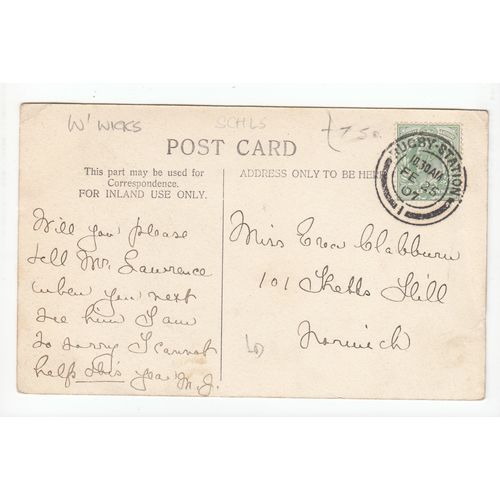 W' WICKS
SCHLS
£7.50
POST CARD
This part may be used for
Correspondence.
FOR INLAND USE ONLY.
ADDRESS ONLY TO BE HERE
RUGBY·STATION
10.30AM
FE 23
07
1
Will you please
tell Mr. Lawrence
when you next
see him I am
so sorry I cannot
help this year M.J.
Miss Eva Clabburn
101 Ketts Hill
Norwich